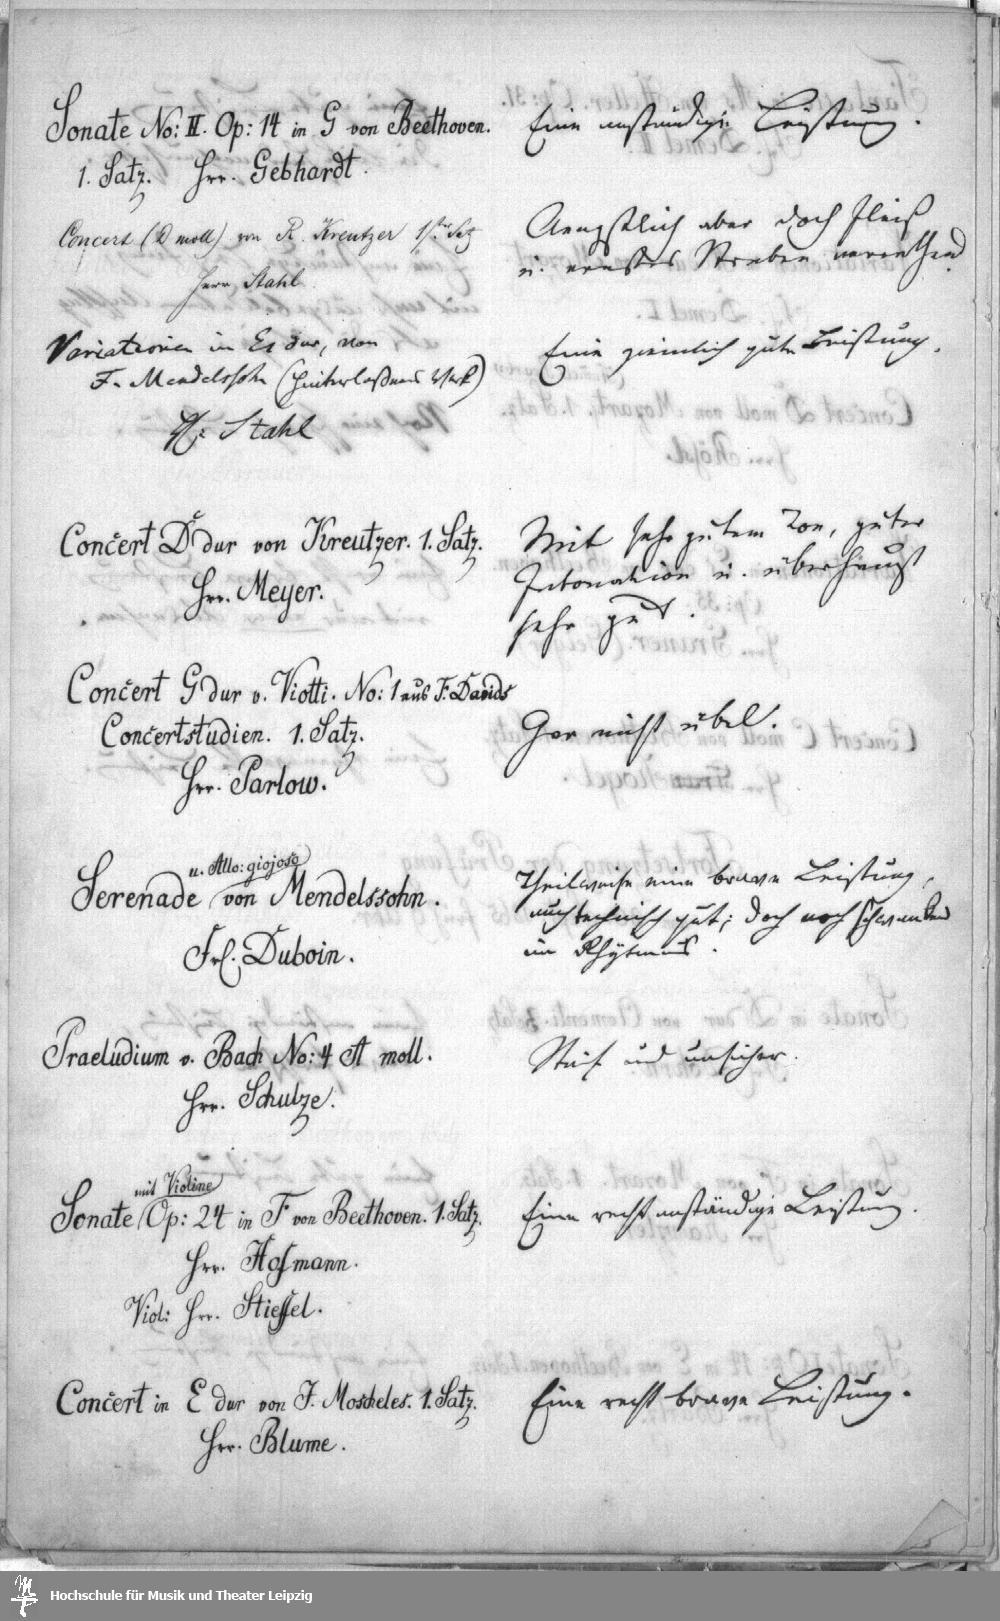 Sonate No: II. Op: 14 in G von Beethoven.
1. Satz. Hrr. Gebhardt.
Eine anständige Leistung.
Concert (D moll) von R. Kreutzer 1ster Satz
Herr Stahl
Aengstlich aber doch Fleiß
u. ernstes Streben verrathend
Variationen in Es dur, von
F. Mendelssohn (hinterlaßenes Werk)
Hr. Stahl
Eine ziemlich gute Leistung.
Concert D dur von Kreutzer. 1. Satz.
Hrr. Meyer.
Mit sehr gutem Ton, guter
Intonation u. überhaupt
sehr gut.
Concert G dur v. Viotti. No: 1 aus F. Davids
Concertstudien. 1. Satz.
Hrr. Parlow.
Gar nicht übel.
u. Allo: giojoso
Serenade von Mendelssohn.
Frl. Duboin.
Theilweise eine brave Leistung,
auch technisch gut; doch noch schwankend
im Rhytmus.
Praeludium v. Bach No: 4 A moll.
Hrr. Schulze.
Steif und unsicher.
mit Violine
Sonate Op: 24 in F von Beethoven. 1. Satz.
Hrr. Hofmann.
Viol: Hrr. Stieffel.
Eine recht anständige Leistung.
Concert in E dur von J. Moscheles. 1. Satz.
Hrr. Blume.
Eine recht brave Leistung.
Hochschule für Musik und Theater Leipzig